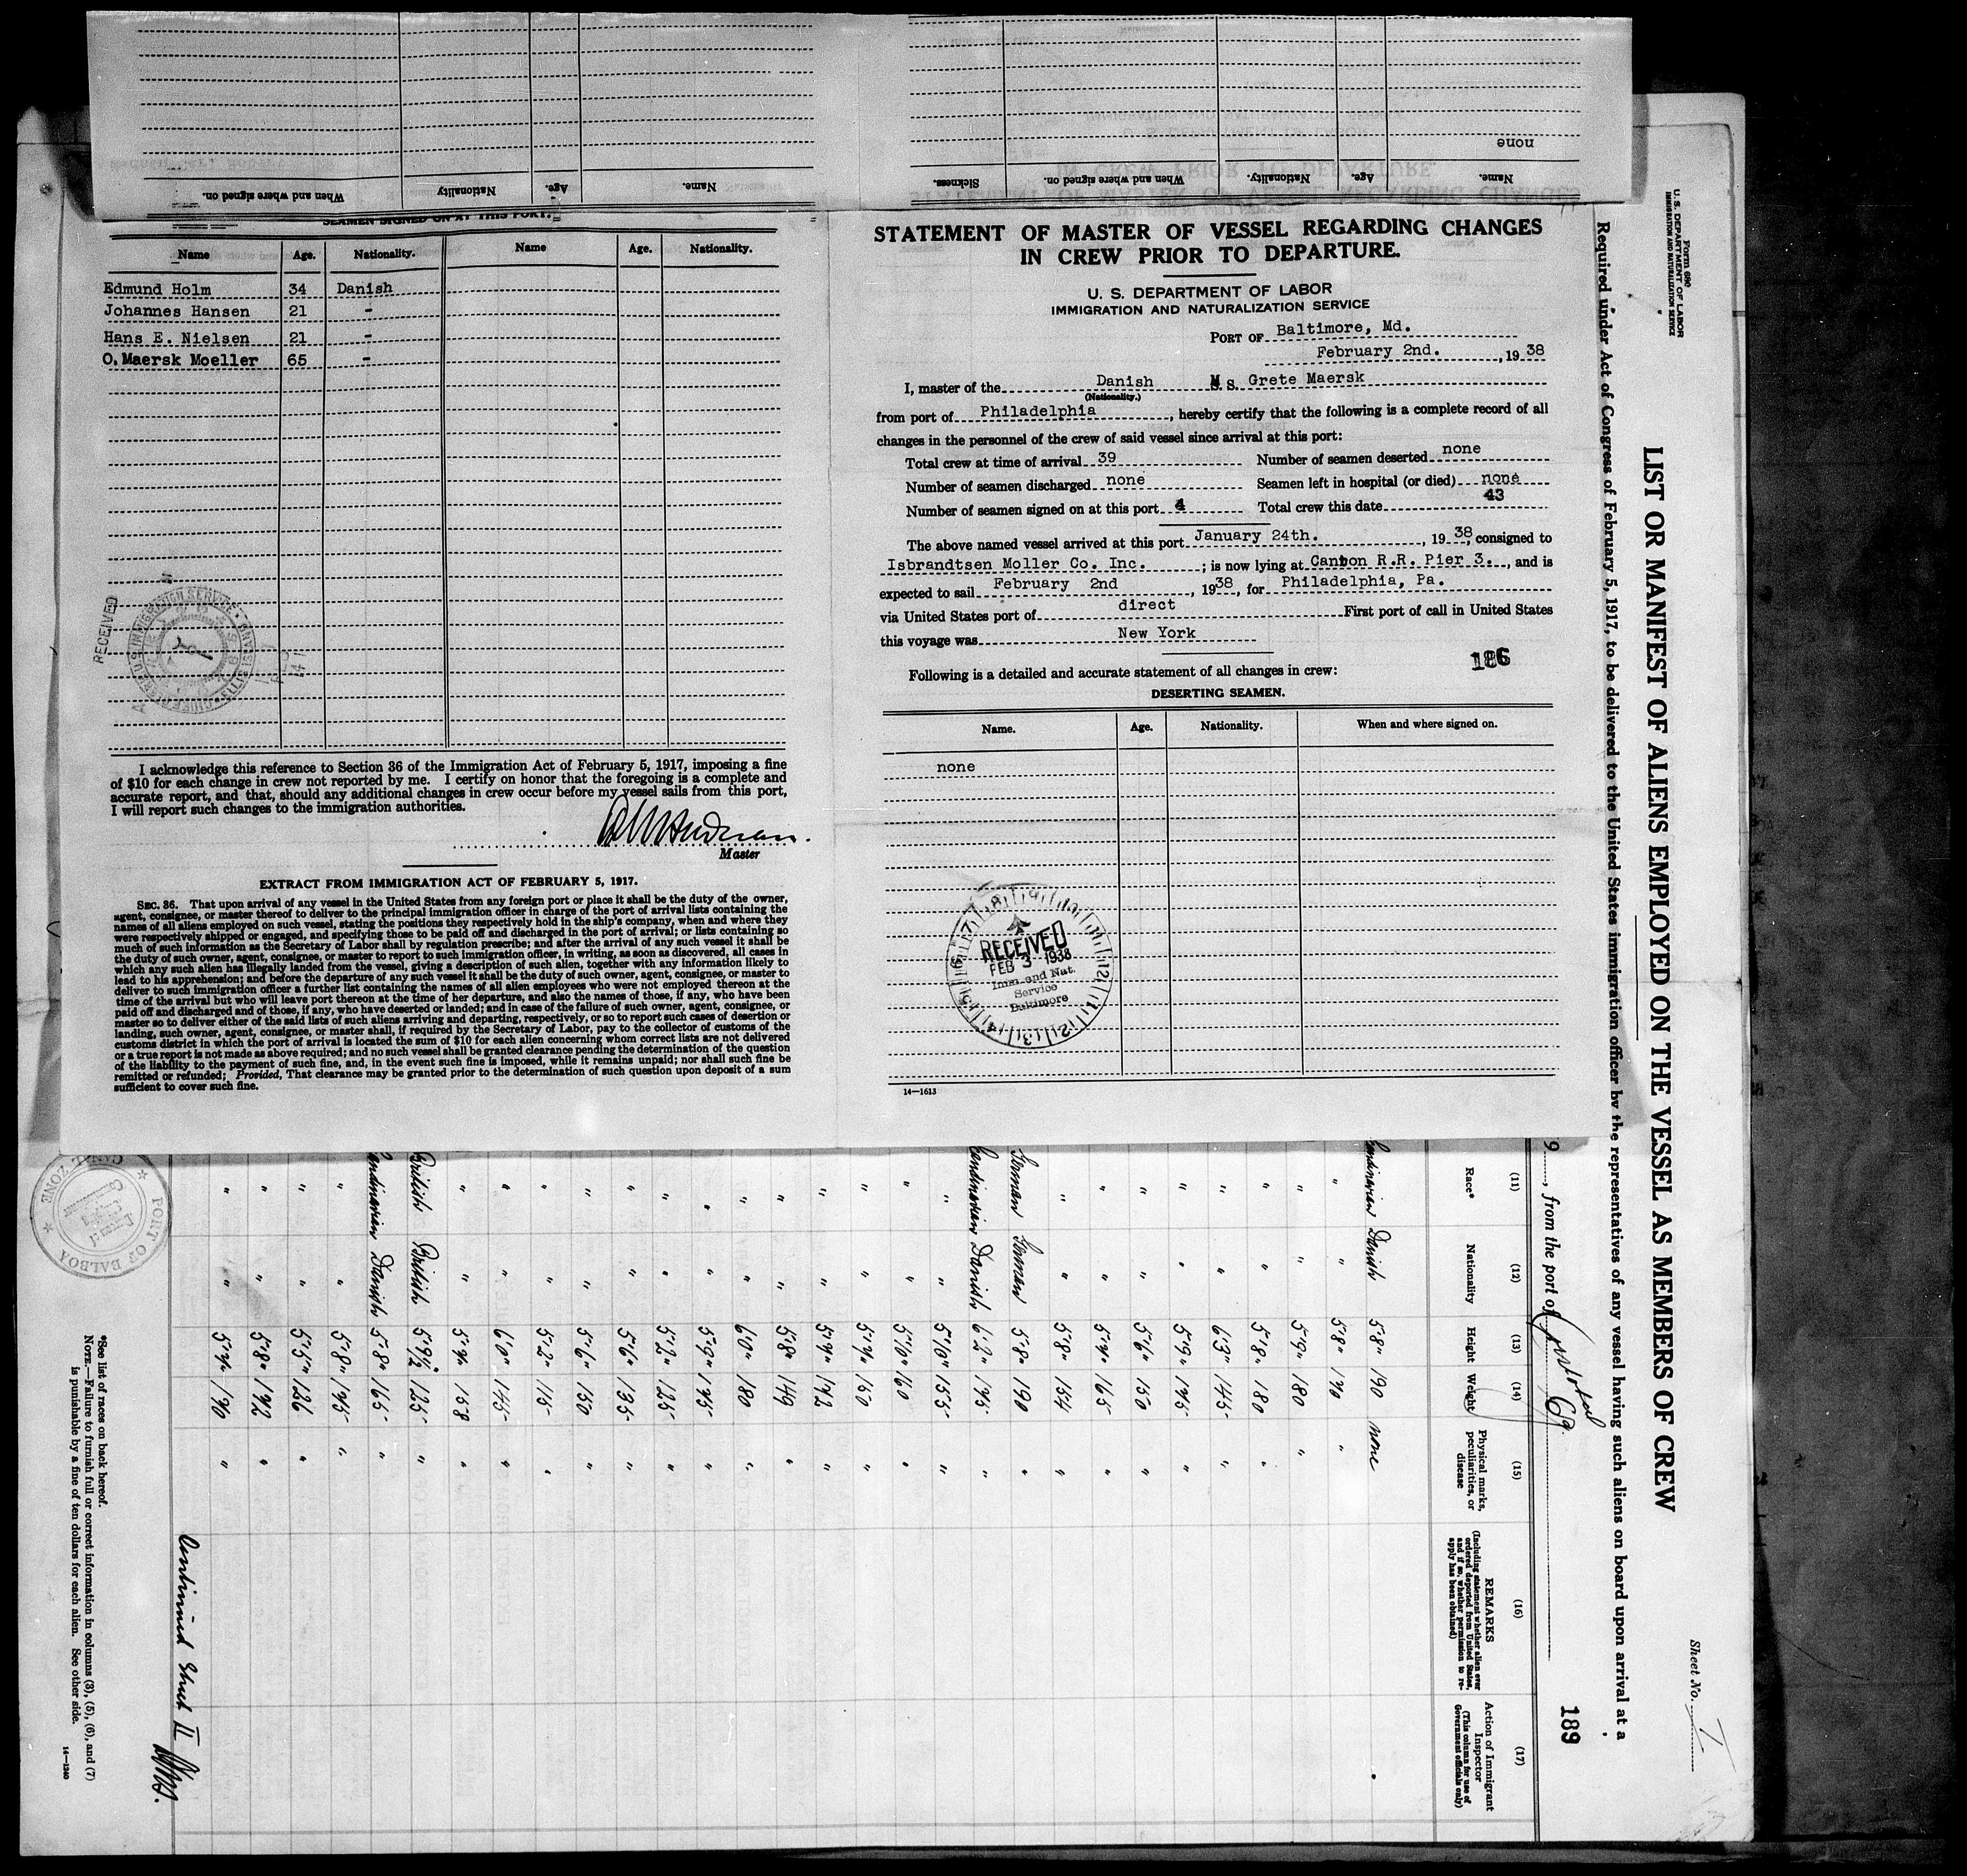 Name. Age. Nationality When and where signed on.
Name. Age. Nationality. When and where signed on. Sickness.
none
SEAMEN SIGNED ON AT THIS PORT.
Name Age. Nationality. Name Age. Nationality.
Edmund Holm 34 Danish
Johannes Hansen 21 -
Hans E. Nielsen 21 -
O. Maersk Moeller 65 -
RECEIVED
I acknowledge this reference to Section 36 of the Immigration Act of February 5, 1917, imposing a fine
of $10 for each change in crew not reported by me. I certify on honor that the foregoing is a complete and
accurate report, and that, should any additional changes in crew occur before my vessel sails from this port,
I will report such changes to the immigration authorities.
Master
EXTRACT FROM IMMIGRATION ACT OF FEBRUARY 5, 1917.
SEC. 36. That upon arrival of any vessel in the United States from any foreign port or place it shall be the duty of the owner,
agent, consignee, or master thereof to deliver to the principal immigration officer in charge of the port of arrival lists containing the
names of all aliens employed on such vessel, stating the positions they respectively hold in the ship's company, when and where they
were respectively shipped or engaged, and specifying those to be paid off and discharged in the port of arrival; or lists containing so
much of such information as the Secretary of Labor shall by regulation prescribe; and after the arrival of any such vessel it shall be
the duty of such owner, agent, consignee, or master to report to such immigration officer, in writing, as soon as discovered, all cases in
which any such alien has illegally landed from the vessel, giving a description of such alien, together with any information likely to
lead to his apprehension; and before the departure of any such vessel it shall be the duty of such owner, agent, consignee, or master to
deliver to such immigration officer a further list containing the names of all alien employees who were not employed thereon at the
time of the arrival but who will leave port thereon at the time of her departure, and also the names of those, if any, who have been
paid off and discharged and of those, if any, who have deserted or landed; and in case of the failure of such owner, agent, consignee, or
master so to deliver either of the said lists of such aliens arriving and departing, respectively, or so to report such cases of desertion or
landing, such owner, agent, consignee, or master shall, if required by the Secretary of Labor, pay to the collector of customs of the
customs district in which the port of arrival is located the sum of $10 for each alien concerning whom correct lists are not delivered
or a true report is not made as above required; and no such vessel shall be granted clearance pending the determination of the question
of the liability to the payment of such fine, and, in the event such fine is imposed, while it remains unpaid; nor shall such fine be
remitted or refunded; Provided, That clearance may be granted prior to the determination of such question upon deposit of a sum
sufficient to cover such fine.
STATEMENT OF MASTER OF VESSEL REGARDING CHANGES
IN CREW PRIOR TO DEPARTURE.
U. S. DEPARTMENT OF LABOR
IMMIGRATION AND NATURALIZATION SERVICE
PORT OF Baltimore, Md.
February 2nd. , 19 38
I, master of the Danish M. S. Grete Maersk
(Nationality.)
from port of Philadelphia , hereby certify that the following is a complete record of all
changes in the personnel of the crew of said vessel since arrival at this port:
Total crew at time of arrival 39 Number of seamen deserted none
Number of seamen discharged none Seamen left in hospital (or died) none
Number of seamen signed on at this port 4 Total crew this date 43
The above named vessel arrived at this port January 24th. , 19 38, consigned to
Isbrandtsen Moller Co. Inc. ; is now lying at Canton R.R. Pier 3. , and is
expected to sail February 2nd , 19 38, for Philadelphia, Pa.
via United States port of direct First port of call in United States
this voyage was New York
186
Following is a detailed and accurate statement of all changes in crew:
DESERTING SEAMEN.
Name. Age. Nationality. When and where signed on.
none
RECEIVED
FEB 3 1938
Imm. and Nat.
Service
Baltimore
14—1613
Form 680
U. S. DEPARTMENT OF LABOR
IMMIGRATION AND NATURALIZATION SERVICE
Sheet No. I
LIST OR MANIFEST OF ALIENS EMPLOYED ON THE VESSEL AS MEMBERS OF CREW
Required under Act of Congress of February 5, 1917, to be delivered to the United States immigration officer by the representatives of any vessel having such aliens on board upon arrival at a
9 , from the port of Cristobal
189
(11) (12) (13) (14) (15) (16) (17)
Race* Nationality Height Weight Physical marks, peculiarities, or disease
REMARKS
(Including statement whether alien ever ordered deported from United States, and if so, whether permission to re-apply has been obtained)
Action of Immigrant Inspector
(This column for use of Government officials only)
Danish 5-8" 190 none
" " 5-9" 180 "
" " 5-8" 180 "
" " 6-3" 145 "
" " 5-9" 145 "
" " 5-6" 150 "
" " 5-4" 165 "
" " 5-8" 154 "
German German 5-8" 190 "
Danish 6-2" 145 "
" " 5-10" 155 "
" " 5-10" 160 "
" " 5-4" 150 "
" " 5-4" 142 "
" " 5-8" 149 "
" " 6-0" 180 "
" " 5-9" 145 "
" " 5-2" 125 "
" " 5-6" 135 "
" " 5-6" 150 "
" " 5-2" 115 "
" " 6-0" 145 "
" " 5-4" 158 "
British British 5-9½ 125 "
Danish 5-8" 165 "
" " 5-8" 145 "
" " 5-5" 126 "
" " 5-8" 142 "
" " 5-4" 140 "
Continued Sheet II
*See list of races on back hereof.
NOTE.—Failure to furnish full or correct information in columns (3), (5), (6), and (7)
is punishable by a fine of ten dollars for each alien. See other side.
14—1240
PORT OF BALBOA
CANAL ZONE